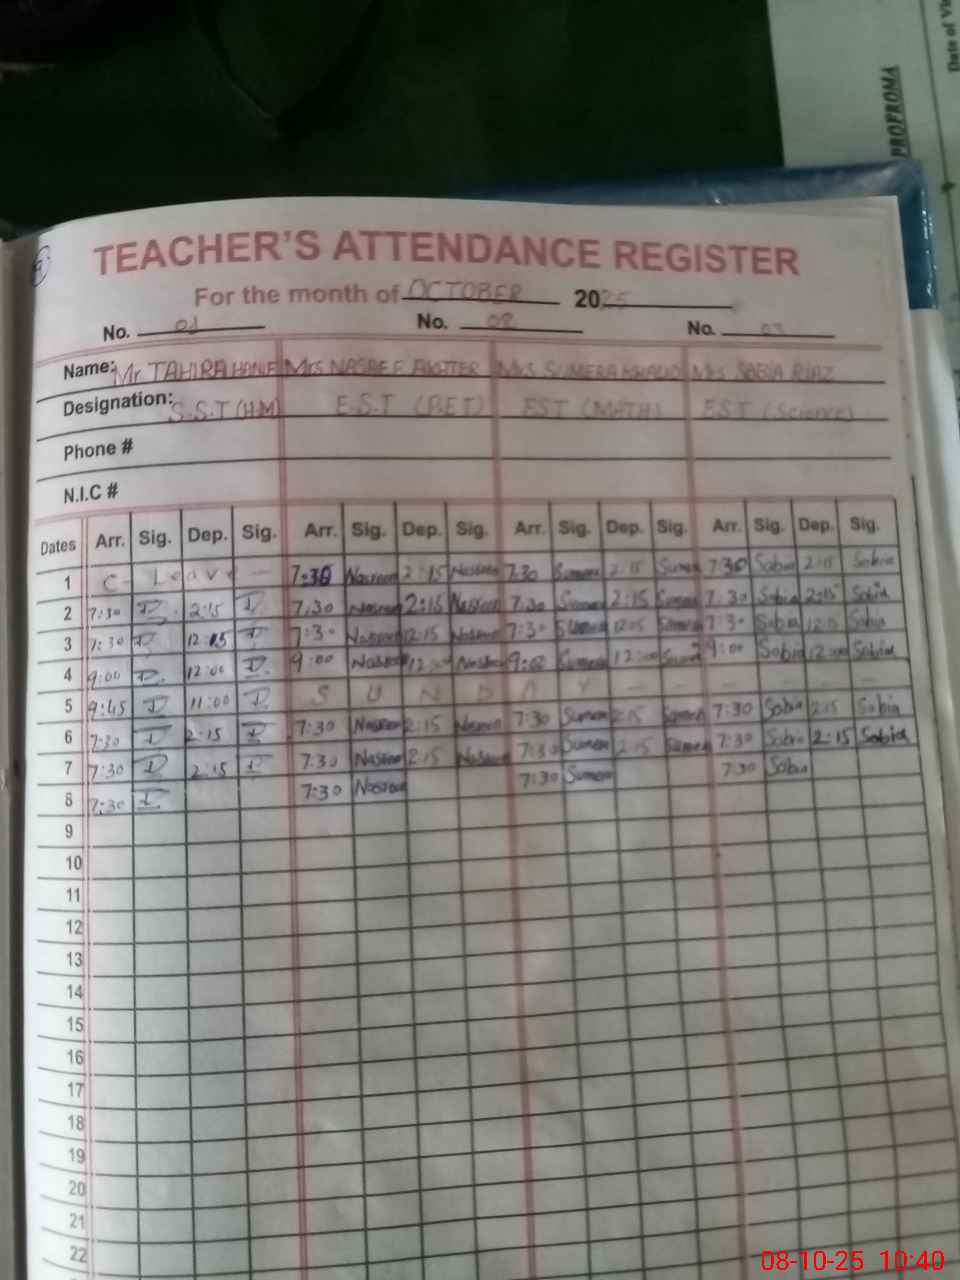 PROFROMA
Date of
TEACHER'S ATTENDANCE REGISTER
For the month of OCTOBER 2025
No. 01 No. 02 No. 03
Name: Mr TAHIRA HANIF Mrs NASREEF AKHTER Mrs SUMERA KHALID Mrs SABIA RIAZ
Designation: S.S.T (HM) E.S.T (P.E.T) EST (MATH) E.S.T (Science)
Phone #
N.I.C #
Dates Arr. Sig. Dep. Sig. Arr. Sig. Dep. Sig. Arr. Sig. Dep. Sig. Arr. Sig. Dep. Sig.
1 C - Leave - 7:30 Nasreen 2:15 Nasreen 7:30 Sumera 2:15 Sumera 7:30 Sabia 2:15 Sabia
2 7:30 2:15 7:30 Nasreen 2:15 Nasreen 7:30 Sumera 2:15 Sumera 7:30 Sabia 2:15 Sabia
3 7:30 12:15 7:30 Nasreen 12:15 Nasreen 7:30 Sumera 12:15 Sumera 7:30 Sabia 12:15 Sabia
4 9:00 12:00 9:00 Nasreen 12:00 Nasreen 9:00 Sumera 12:00 Sumera 9:00 Sabia 12:00 Sabia
5 9:45 11:00 S U N D A Y - - - - - -
6 7:30 2:15 7:30 Nasreen 2:15 Nasreen 7:30 Sumera 2:15 Sumera 7:30 Sabia 2:15 Sabia
7 7:30 2:15 7:30 Nasreen 2:15 Nasreen 7:30 Sumera 2:15 Sumera 7:30 Sabia 2:15 Sabia
8 7:30 7:30 Nasreen 7:30 Sumera 7:30 Sabia
9
10
11
12
13
14
15
16
17
18
19
20
21
22
08-10-25 10:40